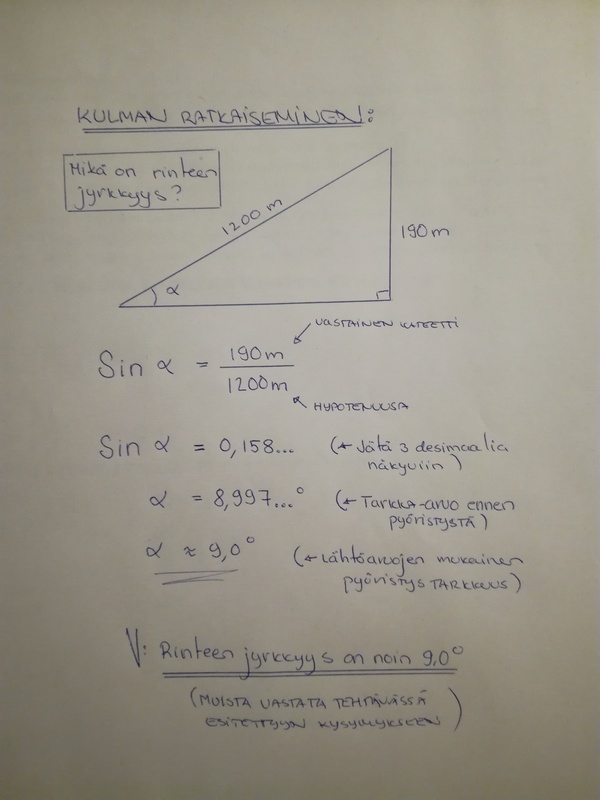 KULMAN RATKAISEMINEN:
Mikä on rinteen
jyrkkyys?
1200 m
190 m
α
VASTAINEN KATEETTI
Sin α = 190 m
1200 m
HYPOTENUUSA
Sin α = 0,158... (← Jätä 3 desimaalia
näkyviin)
α = 8,997...° (← Tarkka-arvo ennen
pyöristystä)
α ≈ 9,0° (← Lähtöarvojen mukainen
pyöristys TARKKUUS)
V: Rinteen jyrkkyys on noin 9,0°
(MUISTA VASTATA TEHTÄVÄSSÄ
ESITETTYYN KYSYMYKSEEN)